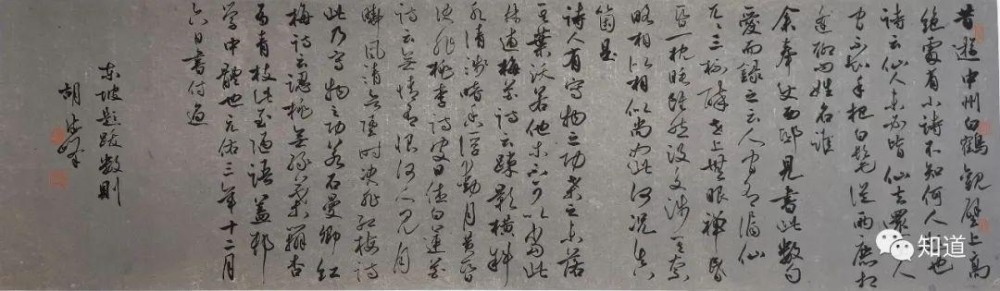 昔遊中州白鶴觀壁上高
絕處有小詩不知何人題也
詩云仙人未必皆仙去還在人
間人不知手把白髦從兩鹿相
逢聊問姓名誰
余奉使西邸見書此數句
愛而錄之云人間有漏仙
兀兀三杯醉世上無眼禪昏
昏一枕睡雖然沒交涉其奈
略相似相似尚如此何況真
箇是
詩人有寫物之功桑之未落
其葉沃若他木不可以當此
林逋梅花詩云疎影橫斜
水清淺暗香浮動月黃昏
決非桃李詩皮日休白蓮花
詩云無情有恨何人見月
曉風清欲墮時決非紅梅詩
此乃寫物之功若石曼卿紅
梅詩云認桃無綠葉辨杏
有青枝此至陋語蓋村
學中體也元祐三年十二月
六日書付過
東坡題跋數則
胡
知道